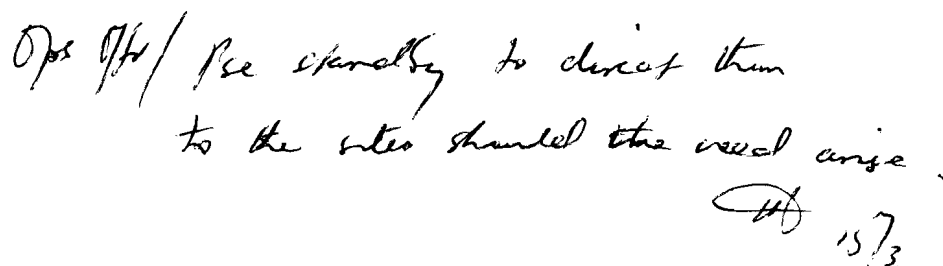 Ops Offr/ Pse standby to direct them
to the sites should the need arise.
15/3